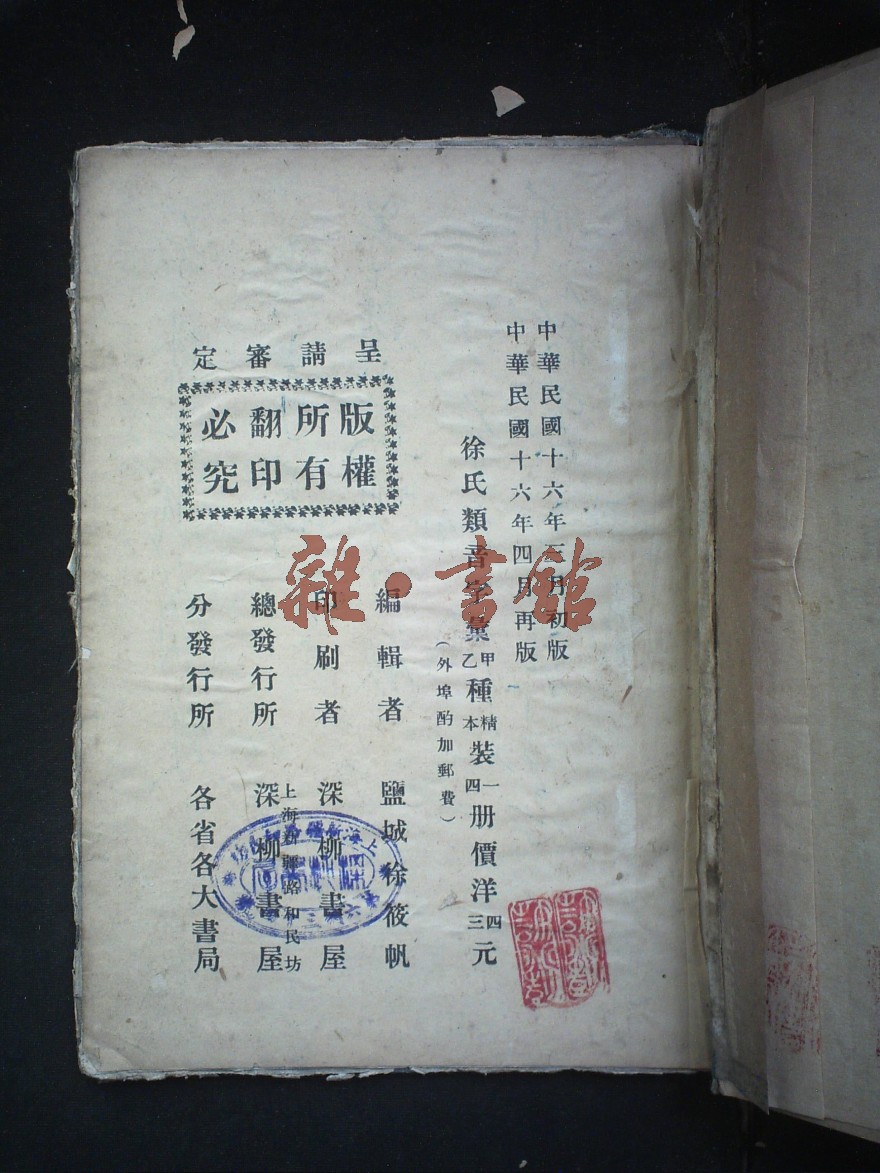 中華民國十六年三月初版
中華民國十六年四月再版
徐氏類音字彙 甲種精裝一册價洋四元
乙種本裝四册價洋三元
(外埠酌加郵費)
呈請審定
版權
所有
翻印
必究
編輯者 鹽城徐筱帆
印刷者 深柳書屋
總發行所 上海新疆路和民坊 深柳書屋
分發行所 各省各大書局
雜·書館